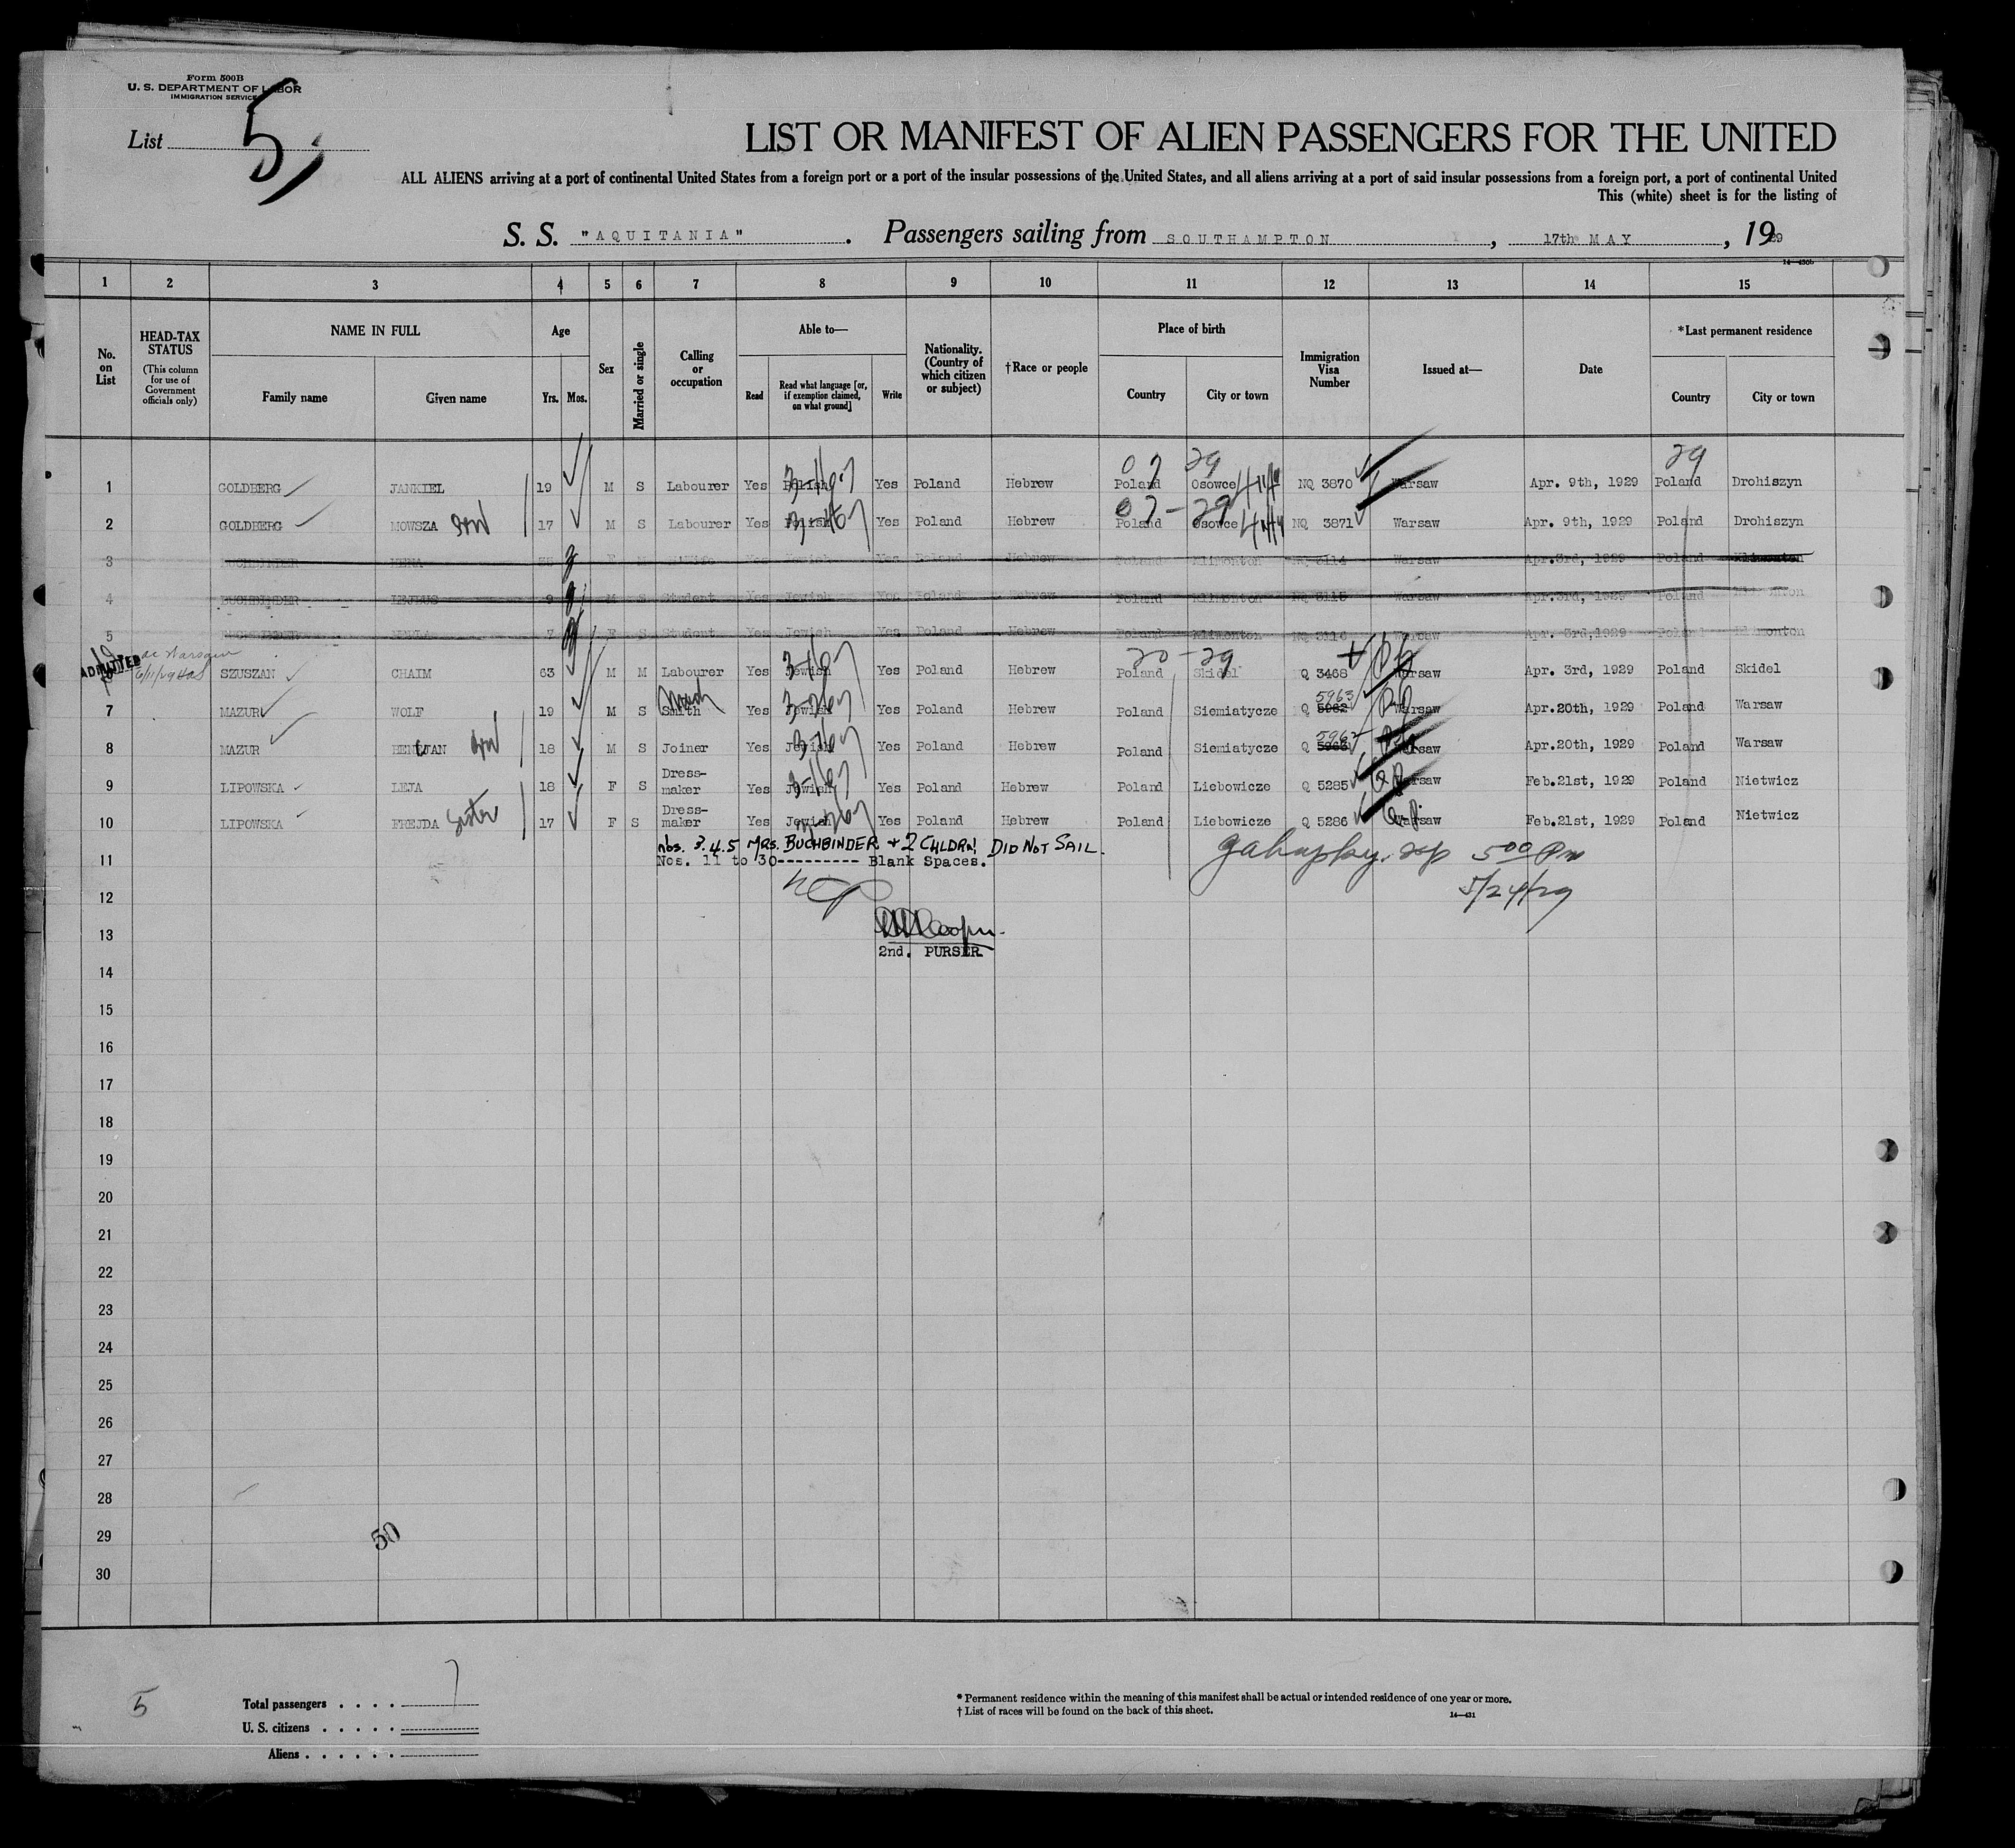 Form 500B
U. S. DEPARTMENT OF LABOR
IMMIGRATION SERVICE
List 5
LIST OR MANIFEST OF ALIEN PASSENGERS FOR THE UNITED
ALL ALIENS arriving at a port of continental United States from a foreign port or a port of the insular possessions of the United States, and all aliens arriving at a port of said insular possessions from a foreign port, a port of continental United
This (white) sheet is for the listing of
S. S. "AQUITANIA". Passengers sailing from SOUTHAMPTON, 17th MAY, 1929
14—430b
1 2 3 4 5 6 7 8 9 10 11 12 13 14 15
No. on List
HEAD-TAX STATUS (This column for use of Government officials only)
NAME IN FULL
Family name Given name
Age
Yrs. Mos.
Sex
Married or single
Calling or occupation
Able to—
Read
Read what language [or, if exemption claimed, on what ground]
Write
Nationality. (Country of which citizen or subject)
†Race or people
Place of birth
Country City or town
Immigration Visa Number
Issued at—
Date
*Last permanent residence
Country City or town
07 29 29
1 GOLDBERG JANKIEL 19 M S Labourer Yes Polish Yes Poland Hebrew Poland Osowce NQ 3870 Warsaw Apr. 9th, 1929 Poland Drohiszyn
07-29
2 GOLDBERG MOWSZA 17 M S Labourer Yes Polish Yes Poland Hebrew Poland Osowce NQ 3871 Warsaw Apr. 9th, 1929 Poland Drohiszyn
3 BUCHBINDER Yes Jewish Yes Poland Hebrew Poland Klimonton NQ 3114 Warsaw Apr.3rd, 1929 Poland Klimonton
4 BUCHBINDER LEJBUS 9 M S Student Yes Jewish Yes Poland Hebrew Poland Klimonton NQ 3115 Warsaw Apr.3rd, 1929 Poland Klimonton
5 BUCHBINDER 7 F S Student Yes Jewish Yes Poland Hebrew Poland Klimonton NQ 3116 Warsaw Apr. 3rd,1929 Poland Klimonton
ADMITTED 6/11/29
20-29
6 SZUSZAN CHAIM 63 M M Labourer Yes Jewish Yes Poland Hebrew Poland Skidel Q 3468 Warsaw Apr. 3rd, 1929 Poland Skidel
5963
7 MAZUR WOLF 19 M S Smith Yes Jewish Yes Poland Hebrew Poland Siemiatycze Q 5962 Warsaw Apr.20th, 1929 Poland Warsaw
5962
8 MAZUR 18 M S Joiner Yes Jewish Yes Poland Hebrew Poland Siemiatycze Q 5963 Warsaw Apr.20th, 1929 Poland Warsaw
9 LIPOWSKA LEJA 18 F S Dress-maker Yes Jewish Yes Poland Hebrew Poland Liebowicze Q 5285 Warsaw Feb.21st, 1929 Poland Nietwicz
10 LIPOWSKA FREJDA Sister 17 F S Dress-maker Yes Jewish Yes Poland Hebrew Poland Liebowicze Q 5286 Warsaw Feb.21st, 1929 Poland Nietwicz
Nos. 3.4.5 MRS. BUCHBINDER + 2 CHLDRN DID NOT SAIL.
11 Nos. 11 to 30--------- Blank Spaces. 5 00 Pm
12 5/24/29
13 Cooper
2nd. PURSER
14
15
16
17
18
19
20
21
22
23
24
25
26
27
28
29
50
30
5
Total passengers . . . . 7
U. S. citizens . . . . .
Aliens . . . . . .
* Permanent residence within the meaning of this manifest shall be actual or intended residence of one year or more.
† List of races will be found on the back of this sheet.
14—431